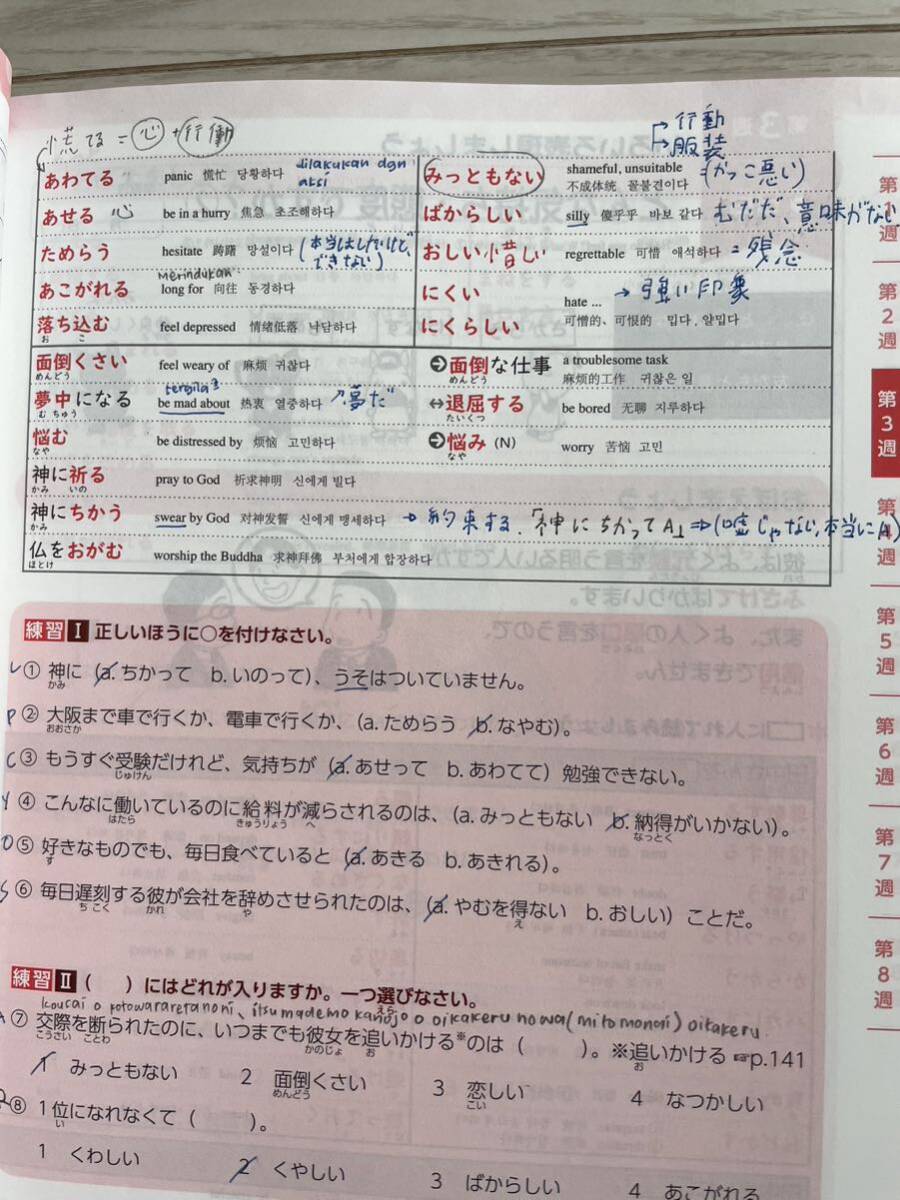 慌てる = 心 + 行動
→ 行動
→ 服装
あわてる panic 慌忙 당황하다 dilakukan dgn aksi
みっともない shameful, unsuitable 不成体统 꼴불견이다 (かっこ悪い)
あせる 心 be in a hurry 焦急 초조해하다
ばからしい silly 傻乎乎 바보 같다 むだだ、意味がない
ためらう hesitate 踌躇 망설이다 (本当はしたいけど、できない)
おしい 惜しい regrettable 可惜 애석하다 = 残念
あこがれる merindukan long for 向往 동경하다
にくい
にくらしい
hate ... → 強い印象
可憎的、可恨的 밉다, 얄밉다
落ち込む feel depressed 情绪低落 낙담하다
お こ
面倒くさい feel weary of 麻烦 귀찮다
めんどう
➔面倒な仕事 a troublesome task
めんどう
麻烦的工作 귀찮은 일
夢中になる tergila² be mad about 热衷 열중하다 ↗夢だ
む ちゅう
⇔退屈する be bored 无聊 지루하다
たいくつ
悩む be distressed by 烦恼 고민하다
なや
➔悩み (N) worry 苦恼 고민
なや
神に祈る pray to God 祈求神明 신에게 빌다
かみ いの
神にちかう swear by God 对神发誓 신에게 맹세하다 → 約束する.「神にちかってA」⇒(嘘じゃない,本当にA)
かみ
仏をおがむ worship the Buddha 求神拜佛 부처에게 합장하다
ほとけ
練習 I 正しいほうに○を付けなさい。
① 神に (a. ちかって b. いのって)、うそはついていません。
かみ
② 大阪まで車で行くか、電車で行くか、(a. ためらう b. なやむ)。
おおさか
③ もうすぐ受験だけれど、気持ちが (a. あせって b. あわてて) 勉強できない。
じゅけん
④ こんなに働いているのに給料が減らされるのは、(a. みっともない b. 納得がいかない)。
はたら きゅうりょう へ なっとく
⑤ 好きなものでも、毎日食べていると (a. あきる b. あきれる)。
す
⑥ 毎日遅刻する彼が会社を辞めさせられたのは、(a. やむを得ない b. おしい) ことだ。
ちこく かれ や え
練習 II ( ) にはどれが入りますか。一つ選びなさい。
えら
kousai o kotowararetanoni, itsumademo kanojo o oikakeru nowa (mitomonai) oitakeru
⑦ 交際を断られたのに、いつまでも彼女を追いかける※のは ( )。※追いかける ☞p.141
こうさい ことわ かのじょ お お
1 みっともない 2 面倒くさい 3 恋しい 4 なつかしい
めんどう こい
⑧ 1位になれなくて ( )。
い
1 くわしい 2 くやしい 3 ばからしい 4 あこがれる
第1週
第2週
第3週
第4週
第5週
第6週
第7週
第8週